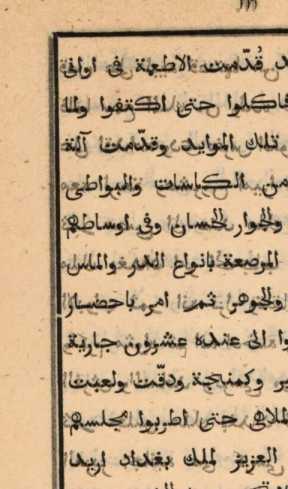 قُدّمت الاطعمة فى اوانى
فاكلوا حتى اكتفوا ولما
تلك الموايد وقدّمت آلة
من الكاسات والبواطى
والجوار الحسان وفى اوساطهم
المرصعة بانواع الدر والماس
والجوهر ثمر امر باحضار
الى عنده عشرون جارية
وكمنجة ودقّت ولعبت
الملاهى حتى اطربوا مجلسهم
العزيز لملك بغداد اريد